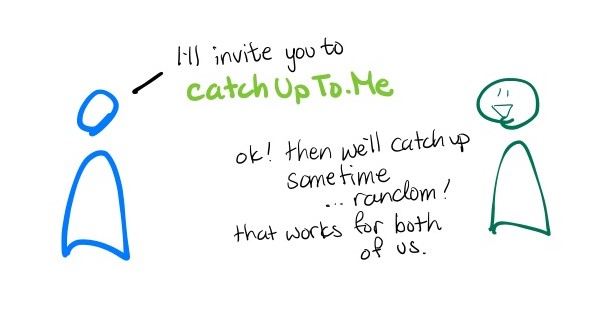 I'll invite you to
catchUpTo.Me
ok! then we'll catch up
sometime
... random!
that works for both
of us.